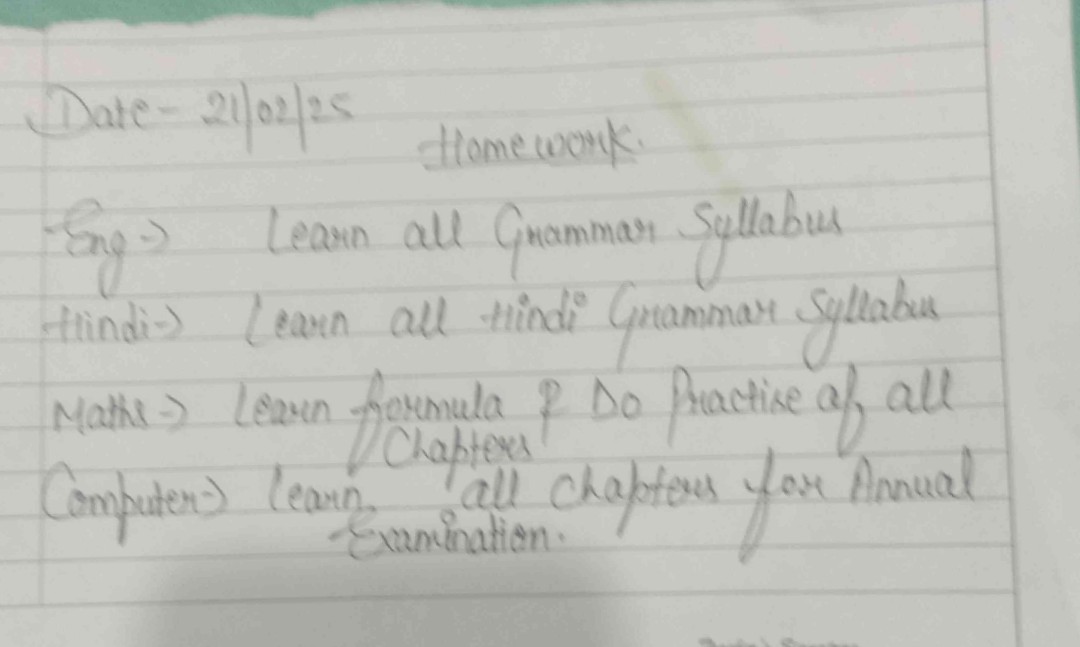 Date - 21/02/25
Homework.
Eng → Learn all Grammar Syllabus
Hindi → Learn all Hindi Grammar Syllabus
Maths → Learn formula & Do Practise of all
Chapters
Computer → Learn all chapters for Annual
Examination.